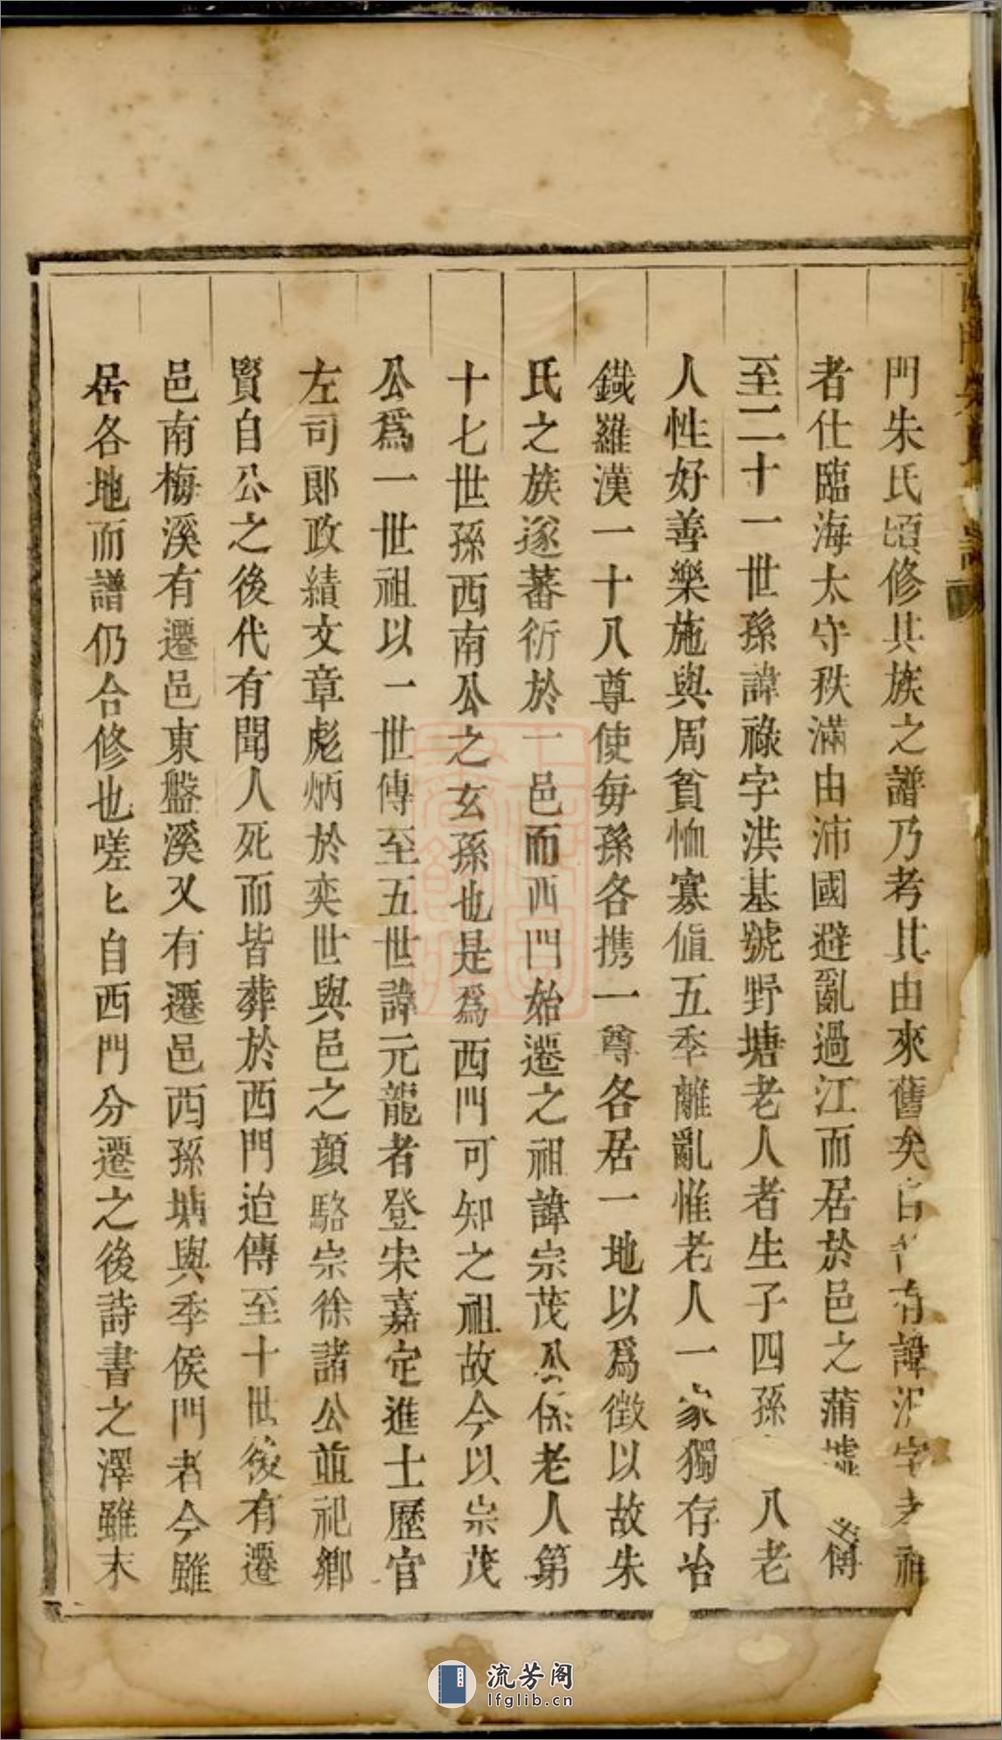 門朱氏頃修其族之譜乃考其由來舊矣自 有諱汎字 祖
者仕臨海太守秩滿由沛國避亂過江而居於邑之蒲墟 傳
至二十一世孫諱祿字洪基號野塘老人者生子四孫 八老
人性好善樂施與周貧恤寡値五季離亂惟老人一家獨存冶
鐵羅漢一十八尊使每孫各携一尊各居一地以爲徵以故朱
氏之族遂蕃衍於一邑而西門始遷之祖諱宗茂公係老人第
十七世孫西南公之玄孫也是爲西門可知之祖故今以宗茂
公爲一世祖以一世傳至五世諱元龍者登宋嘉定進士歷官
左司郎政績文章彪炳於奕世與邑之顏駱宗徐諸公並祀鄉
賢自公之後代有聞人死而皆葬於西門迨傳至十世後有遷
邑南梅溪有遷邑東盤溪又有遷邑西孫塘與季侯門者今雖
居各地而譜仍合修也嗟匕自西門分遷之後詩書之澤雖末
流芳阁
lfglib.cn